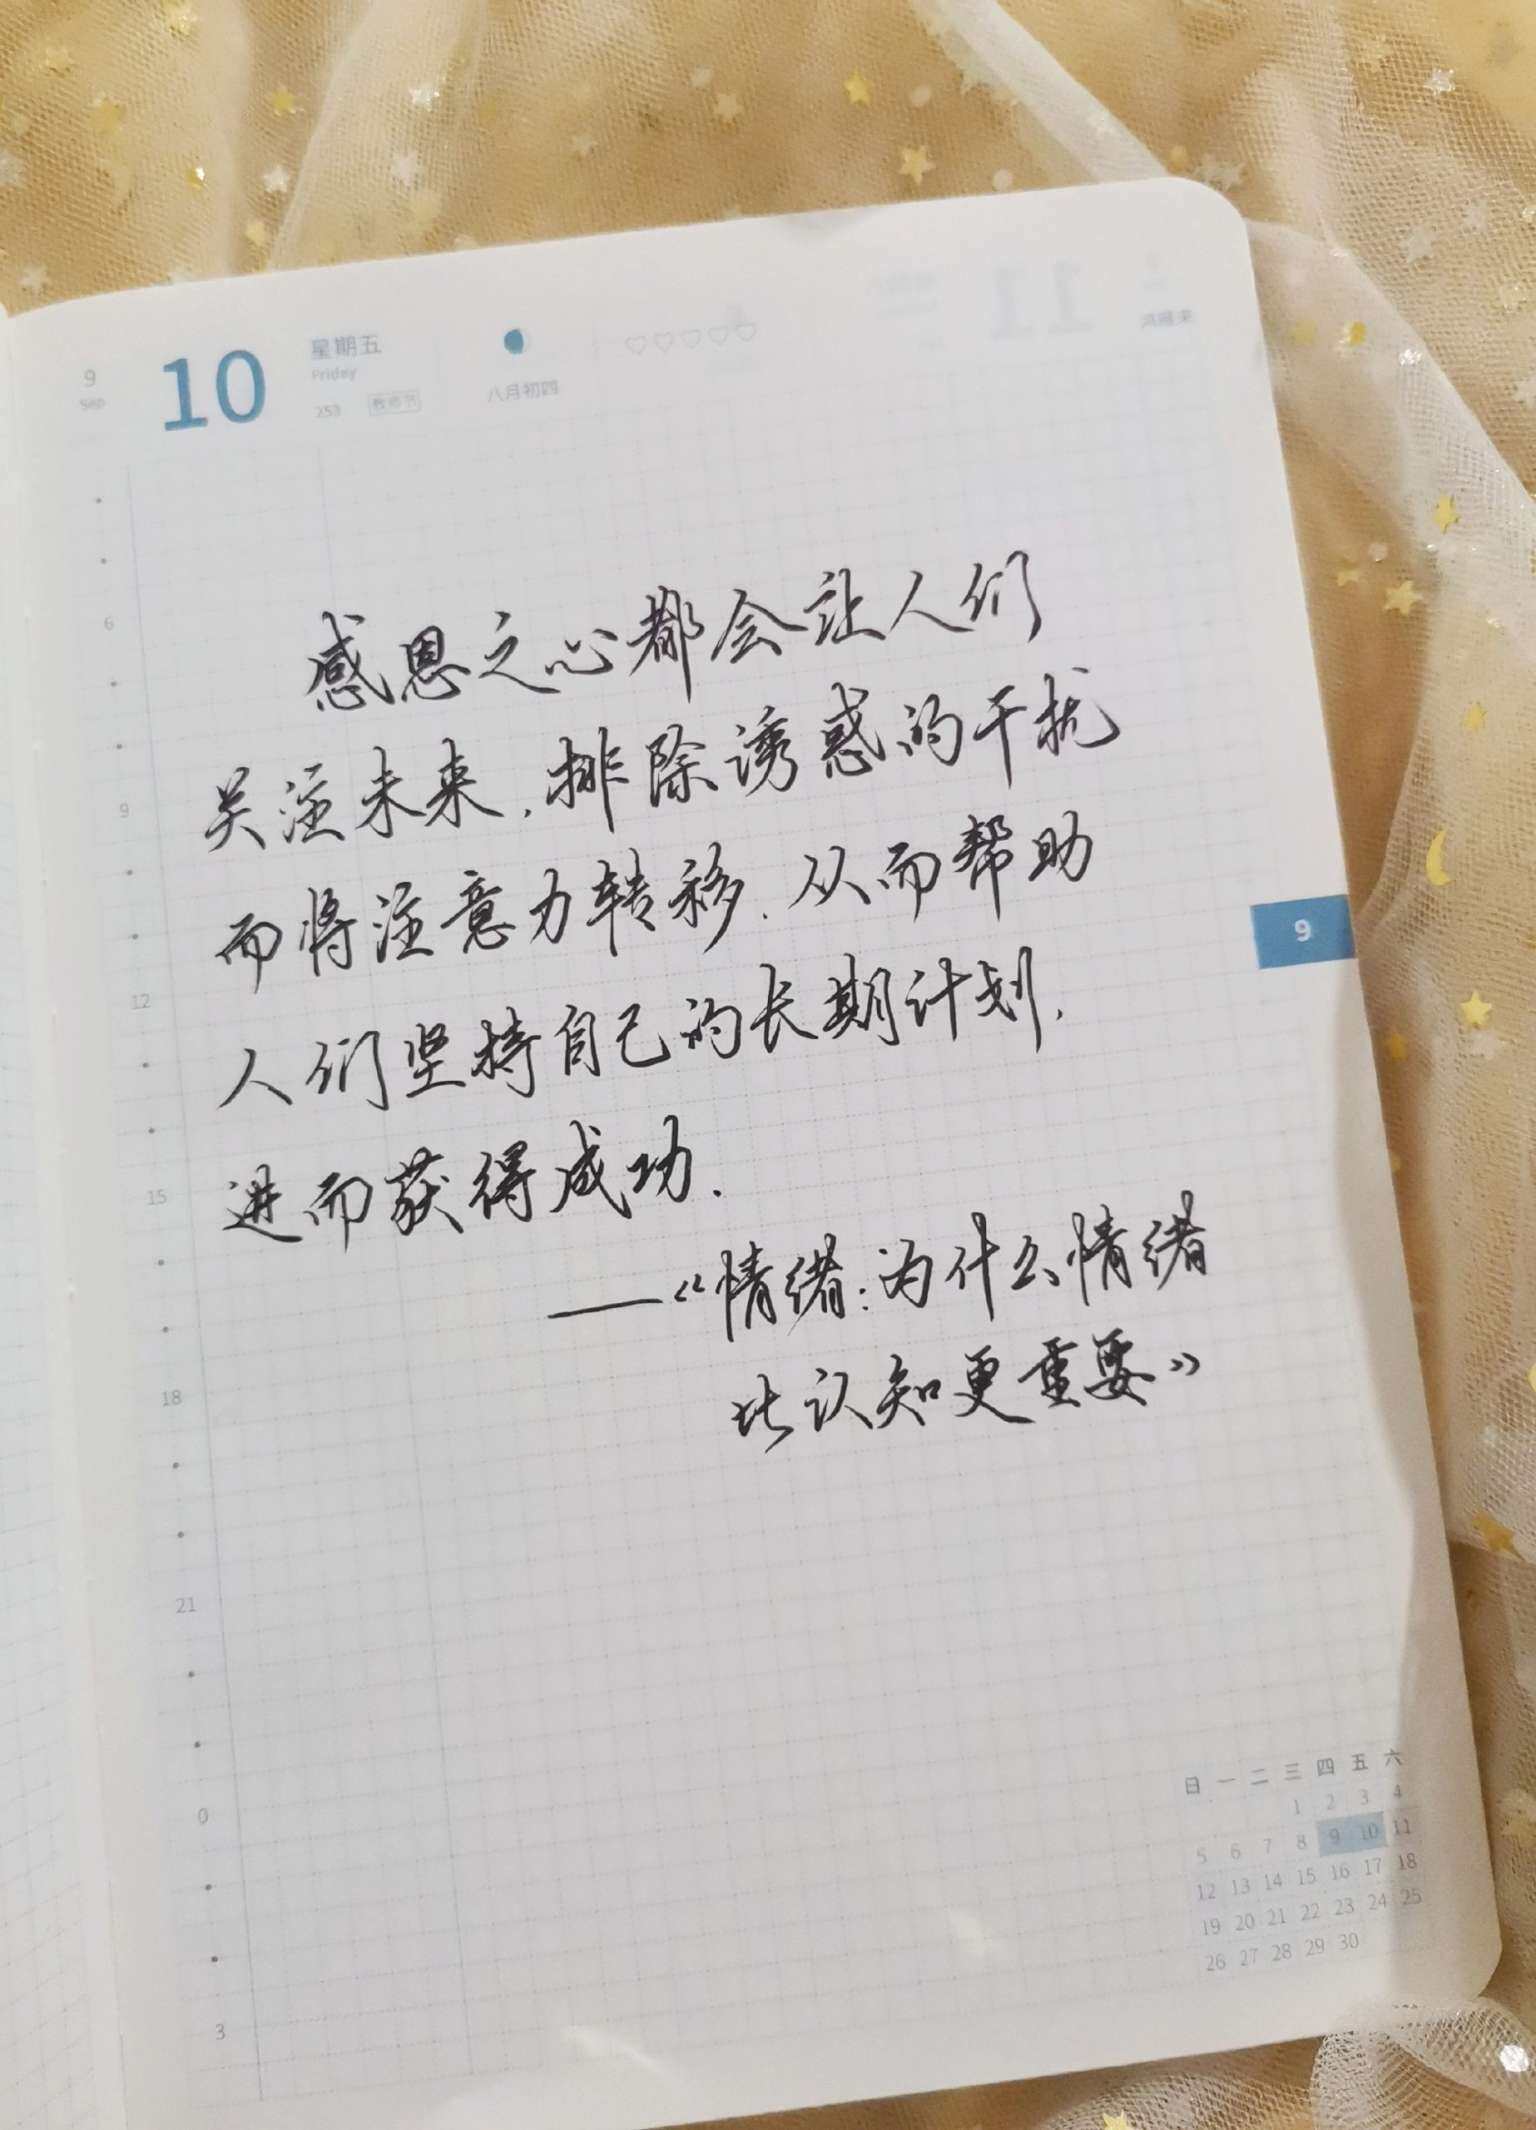 9
Sep
10
星期五
Friday
253 教师节
八月初四
6
9
12
15
18
21
0
3
感恩之心都会让人们
关注未来,排除诱惑的干扰
而将注意力转移.从而帮助
人们坚持自己的长期计划,
进而获得成功.
——《情绪:为什么情绪
比认知更重要》
9
日 一 二 三 四 五 六
1 2 3 4
5 6 7 8 9 10 11
12 13 14 15 16 17 18
19 20 21 22 23 24 25
26 27 28 29 30